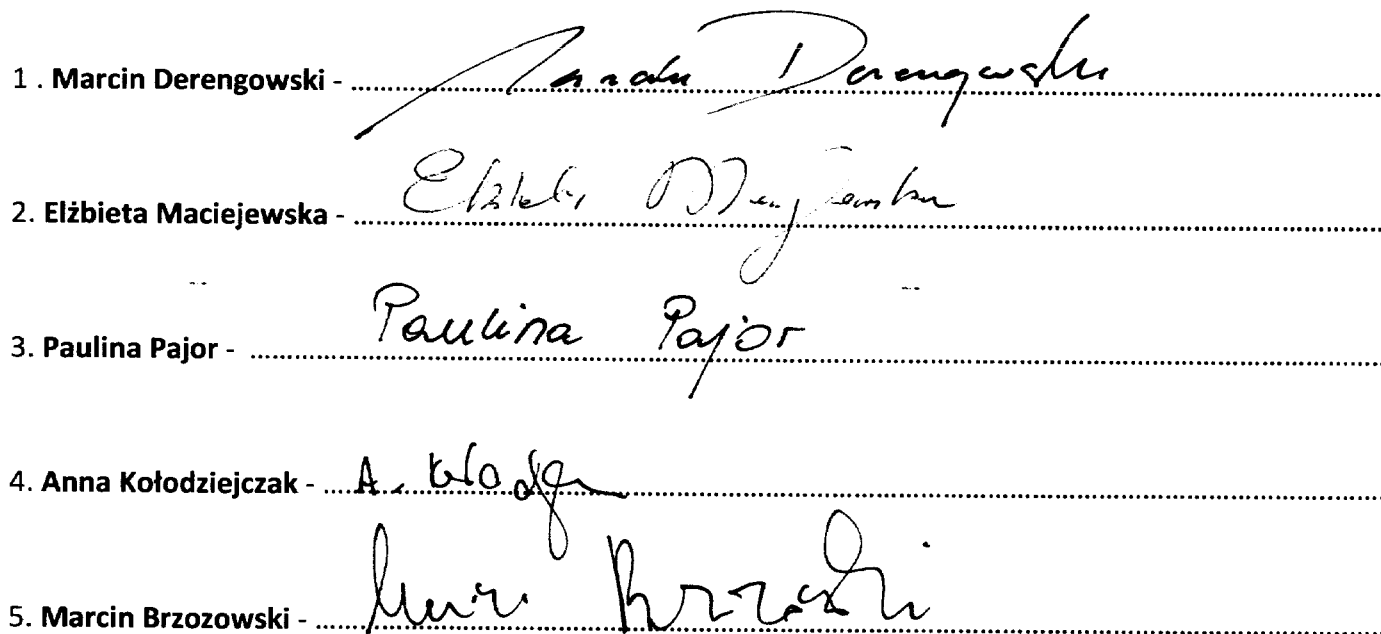 1 . Marcin Derengowski - Marcin Derengowski
2. Elżbieta Maciejewska - Elżbieta Maciejewska
3. Paulina Pajor - Paulina Pajor
4. Anna Kołodziejczak - A.
5. Marcin Brzozowski - Marcin Brzozowski